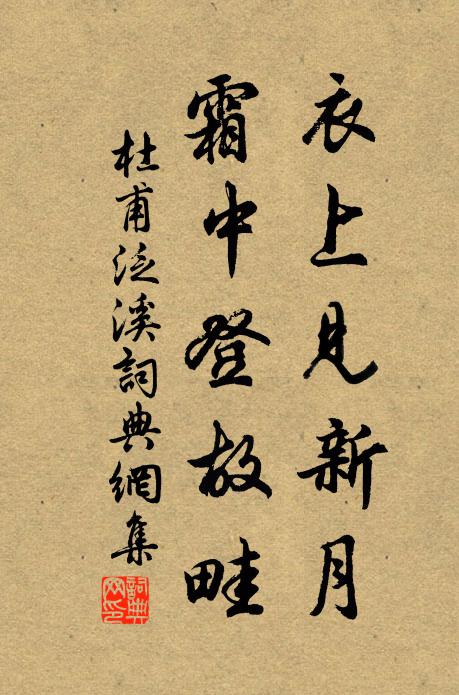 衣上見新月
霜中登故畦
杜甫泛溪詞典網集
詞典网印